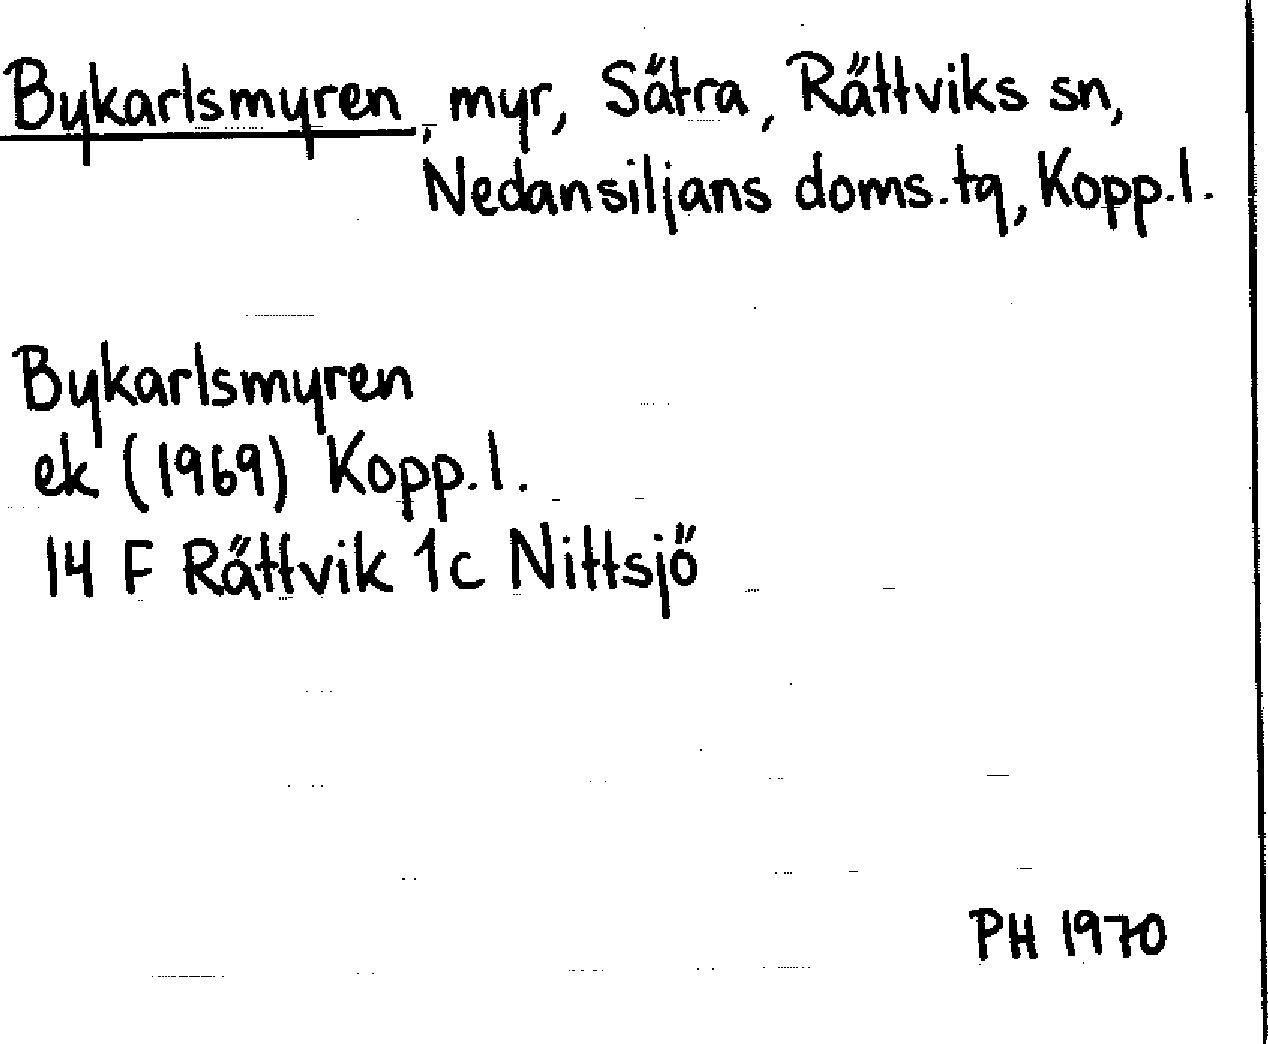 Bykarlsmyren, myr, Sätra, Rättviks sn,
Nedansiljans doms.tg, Kopp.l.
Bykarlsmyren
ek (1969) Kopp.l.
14 F Rättvik 1c Nittsjö
PH 1970